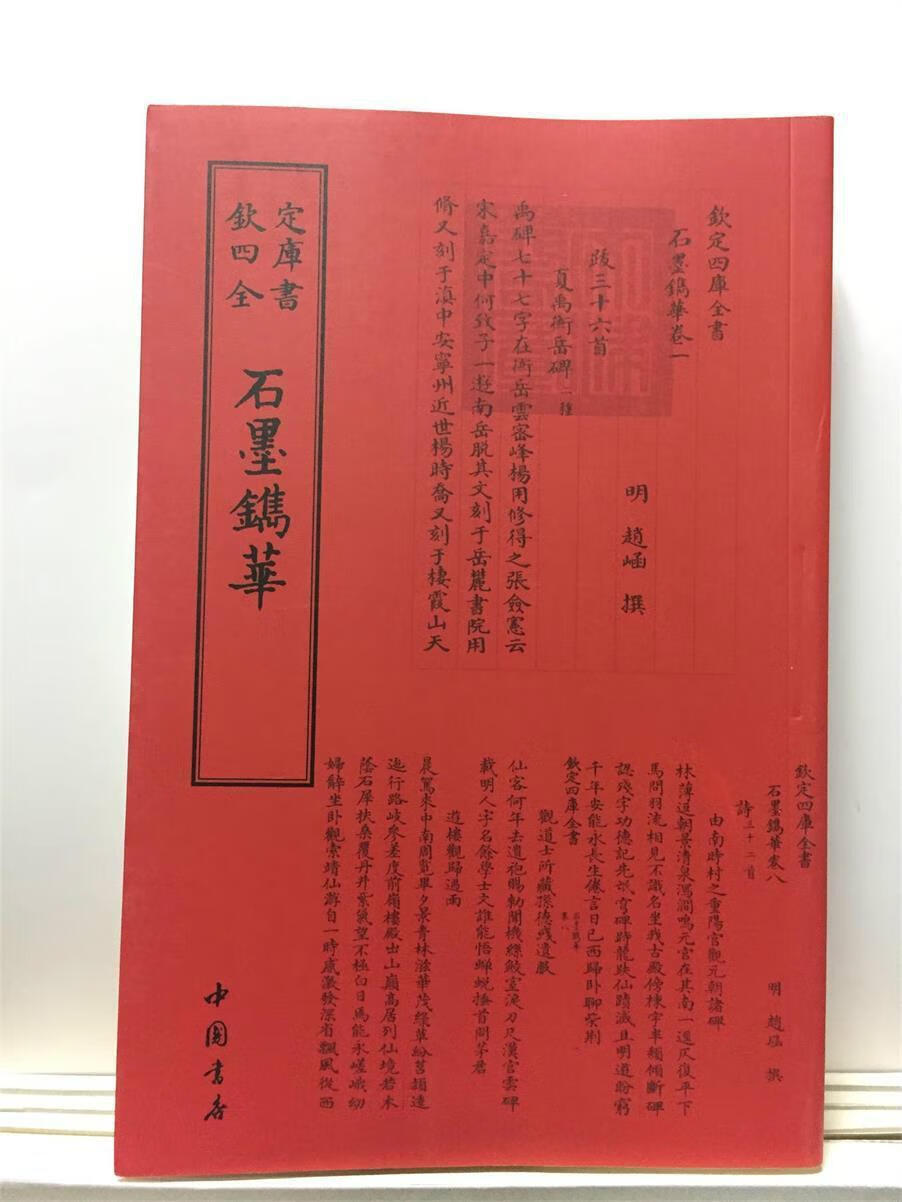 欽定四庫全書
石墨鐫華
中國書店
欽定四庫全書
石墨鐫華卷一
明 趙崡 撰
跋三十六首
夏禹衡岳碑一種
禹碑七十七字在衡岳雲密峰楊用修得之張僉憲云
宋嘉定中何致子一遊南岳脱其文刻于岳麓書院用
脩又刻于滇中安寧州近世楊時喬又刻于棲霞山天
欽定四庫全書
石墨鐫華卷八
明 趙崡 撰
詩三十二首
由南時村之重陽宮觀元朝諸碑
林薄逗朝景清泉瀉澗鳴元宮在其南一選仄復平下
馬問羽流相見不識名坐我古殿傍棟宇率頽傾斷碑
認殘字功德記先氓穹碑跨龍趺仙蹟滅且明道盼窮
千年安能永長生傢言日已西歸卧聊柴荆
欽定四庫全書
石墨鐫華
卷八
觀道士所藏孫德彧遺敕
仙客何年去遺袍賜勅聞機絲鮫室淚刀尺漢宮雲碑
載明人字名餘學士文誰能悟蟬蜕捶首問茅君
遊樓觀歸遇雨
晨駕來中南周覽畢夕景青林滋華茂綠草紛
迤行路岐參差度前嶺樓殿出山巔高居列仙境若木
蔭石犀扶桑覆丹井紫氣望不極白日焉能永嵯峨幼
婦辭坐卧觀索靖仙遊自一時感激發深省飄風從西